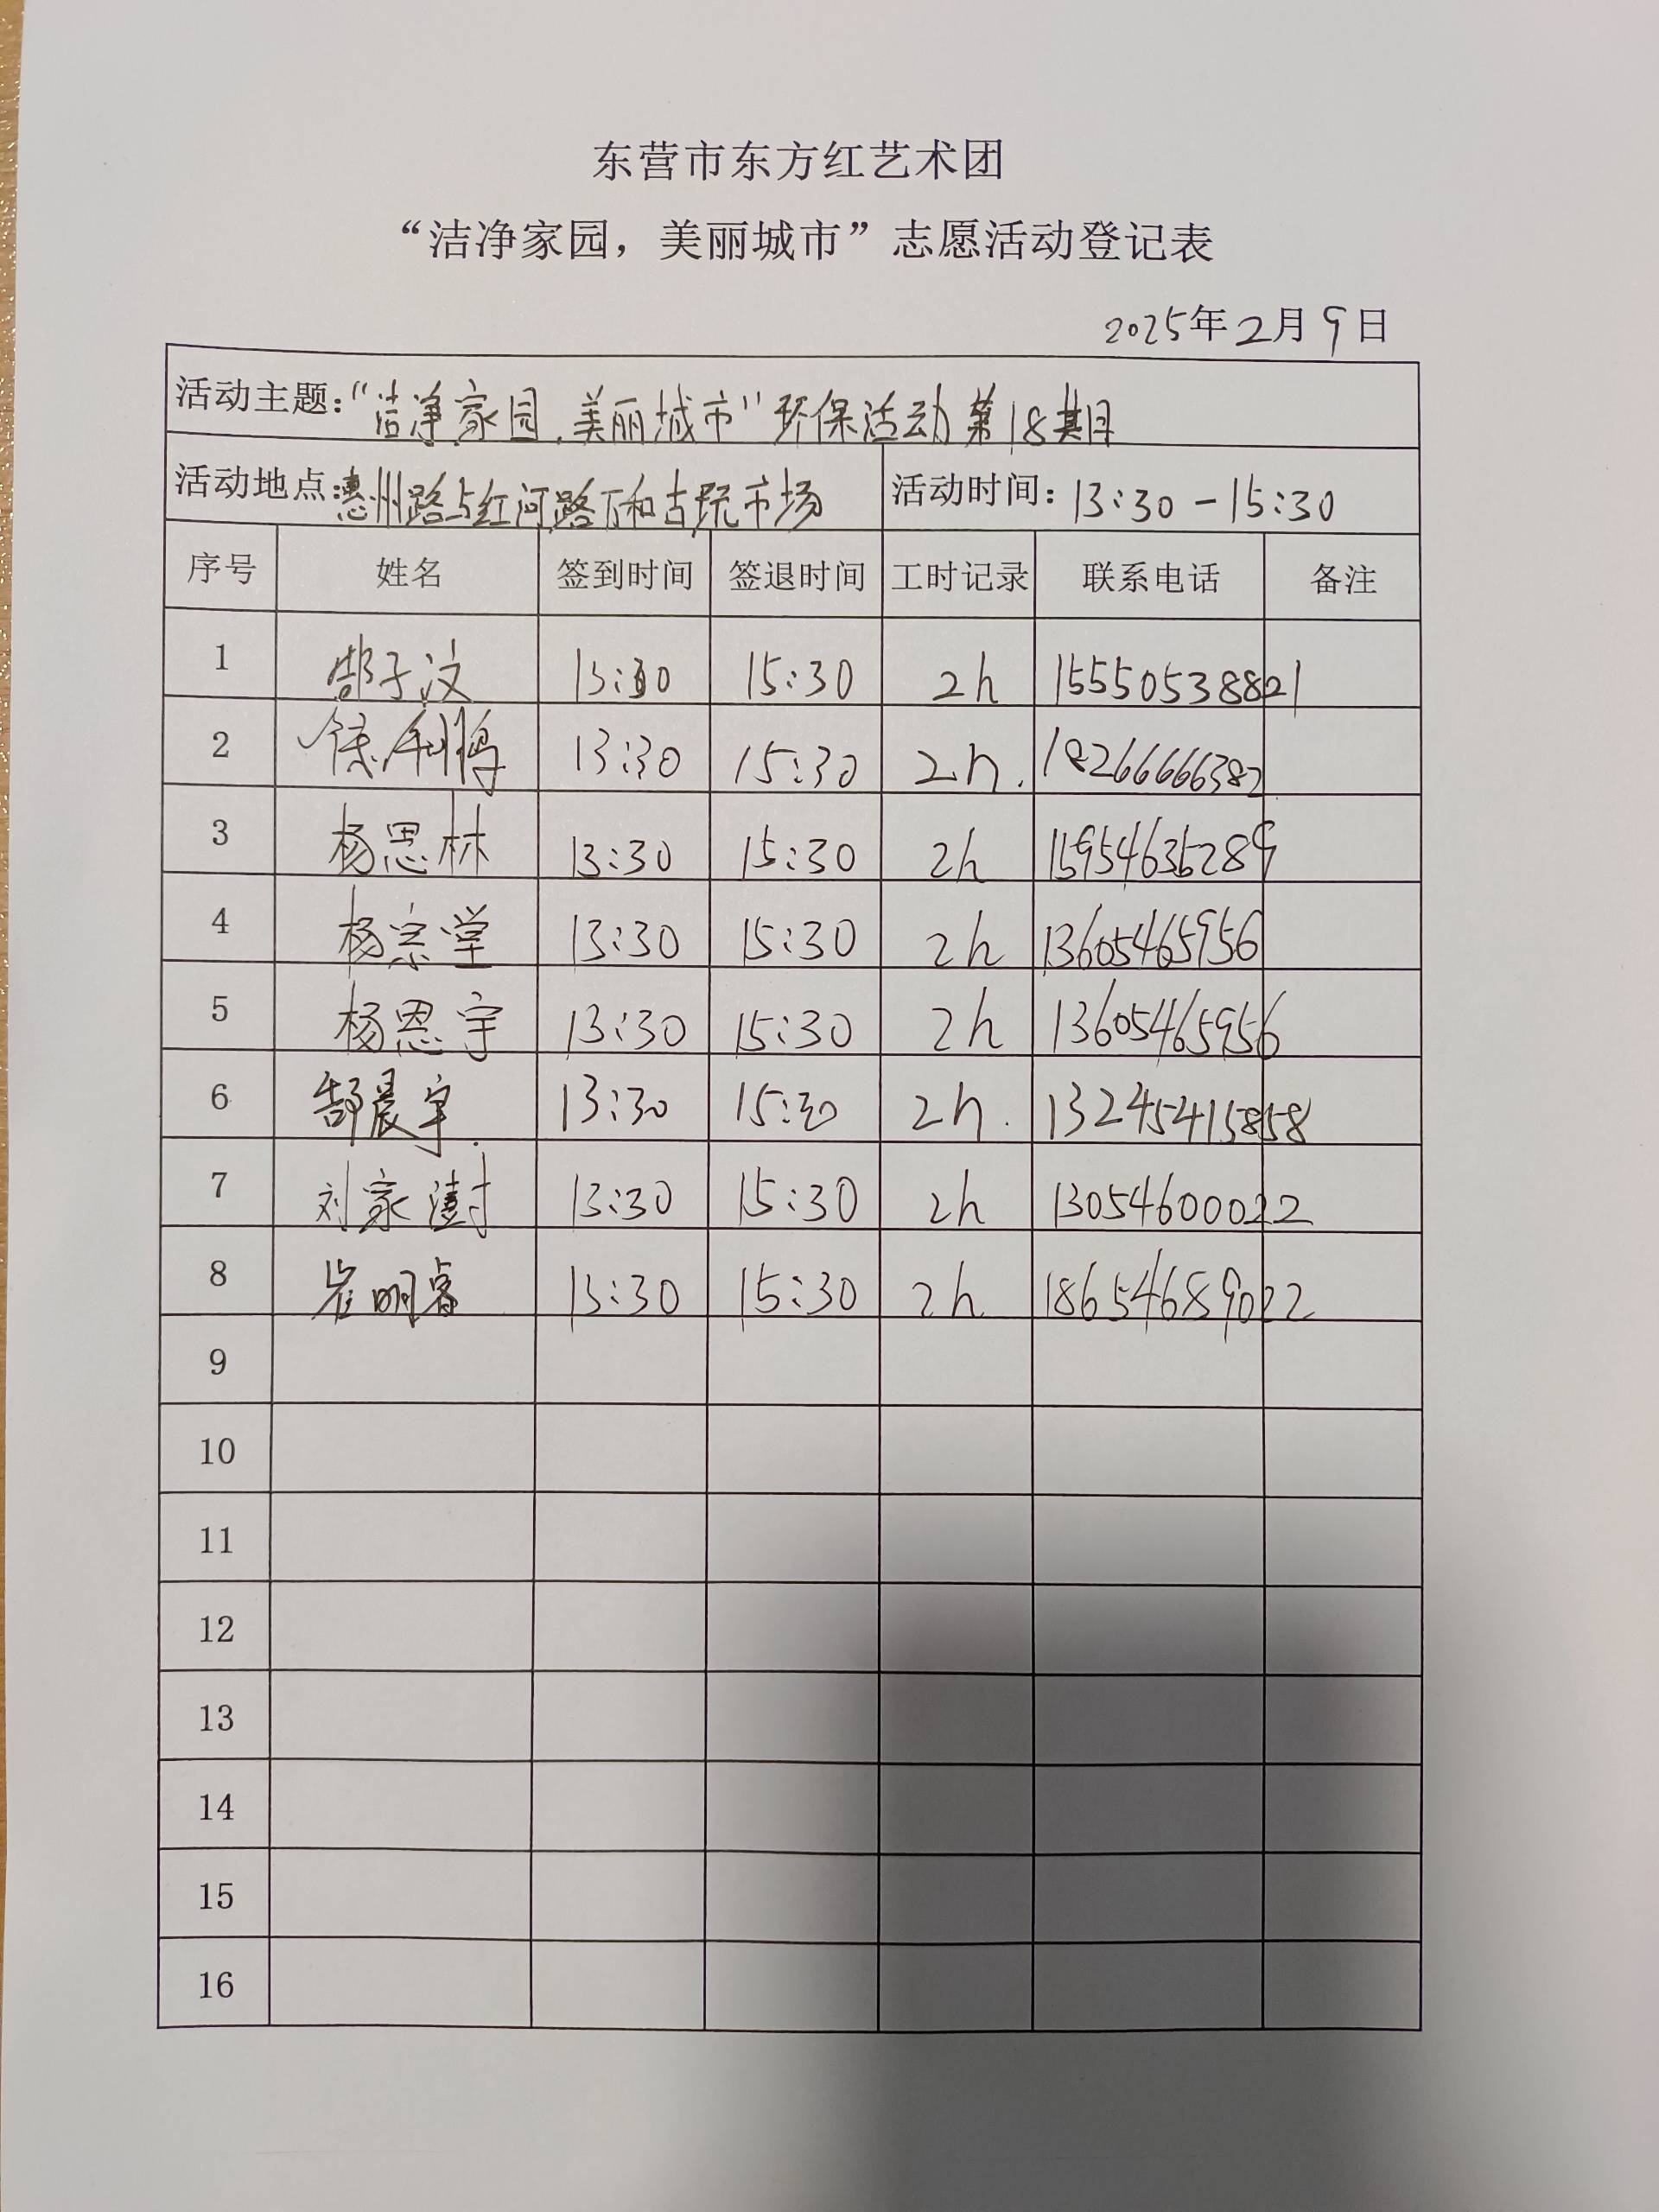 东营市东方红艺术团
“洁净家园，美丽城市”志愿活动登记表
2025年2月9日
活动主题：“洁净家园.美丽城市”环保活动第18期
活动地点：惠州路与红河路下和古玩市场 活动时间：13:30-15:30
序号 姓名 签到时间 签退时间 工时记录 联系电话 备注
1 郜子汶 13:30 15:30 2h 15550538821
2 利博 13:30 15:30 2h. 18266666382
3 杨恩林 13:30 15:30 2h 15954635289
4 杨宗堂 13:30 15:30 2h 13605465956
5 杨恩宇 13:30 15:30 2h 13605465956
6 郜晨宇. 13:30 15:30 2h. 13245415858
7 刘家澍 13:30 15:30 2h 13054600022
8 崔明睿 13:30 15:30 2h 18654689022
9
10
11
12
13
14
15
16